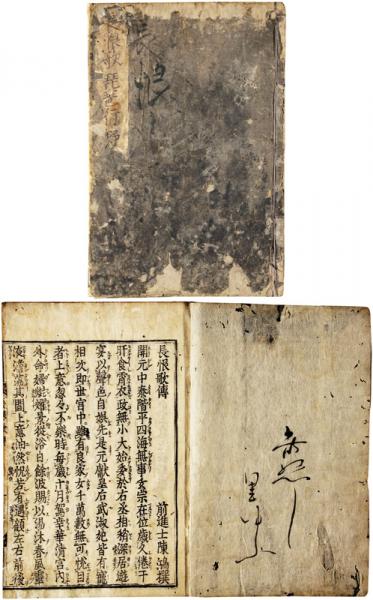 長恨歌琵琶行野
長恨
長恨歌傳
前進士陳鴻撰
開元中泰階平四海無事玄宗在位歳久倦于
旰食宵衣政無小大始委於右丞相稍深居遊
宴以聲色自娯先是元獻皇后武淑妃皆有寵
相次即世宮中雖有良家女千萬數無可悦目
者上意忽々不樂時毎歳十月駕幸華清宮内
外命婦熠燿景從浴日餘波賜以湯沐春風靈
液澹蕩其間上意油然恍若有遇顧左右前後